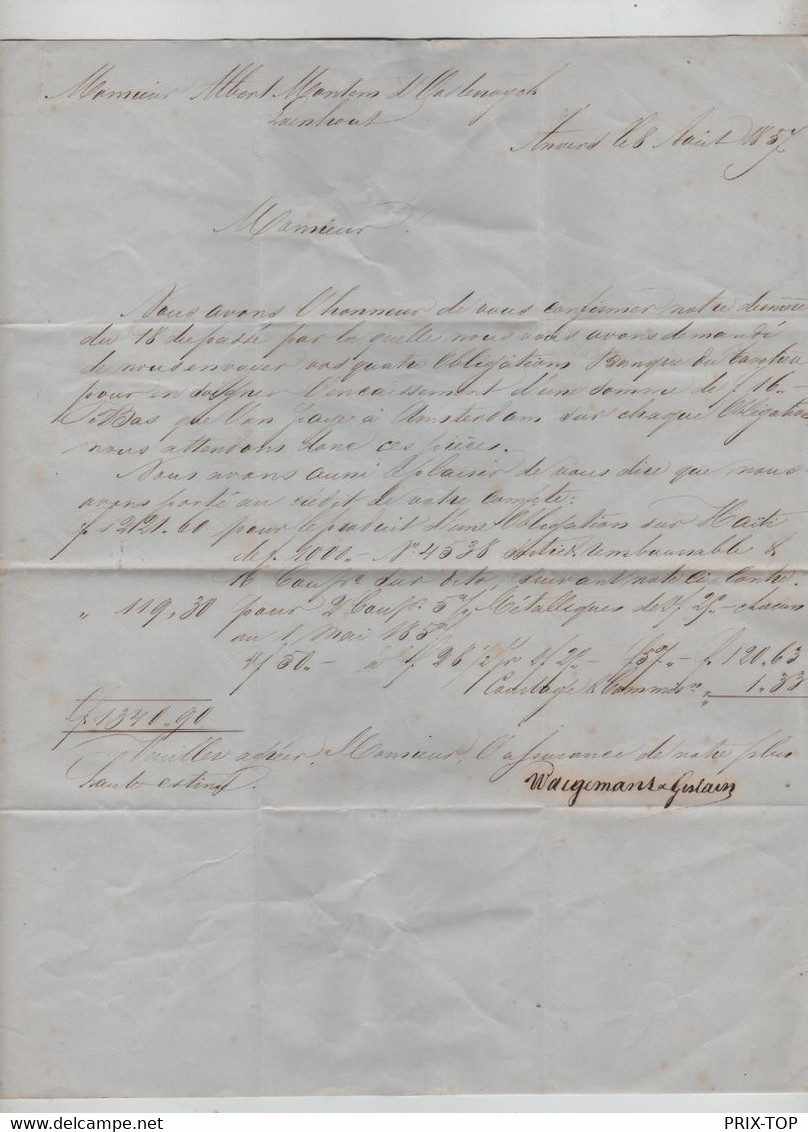 Monsieur Albert
Loenhout
Anvers le 8 Août 1857
Monsieur!
Nous avons l'honneur de vous confirmer notre dernière
du 18 du passé par la quelle nous vous avons demandé
de nous envoyer vos quatre Obligations Banque du
pour en soigner l'encaissement d'une somme de f 16.-
P. Bas que l'on paye à Amsterdam sur chaque Obligation
nous attendons donc ces pièces.
Nous avons aussi le plaisir de vous dire que nous
avons porté au crédit de votre compte:
pour le produit d'une Obligation sur
de f. N° 4538 remboursable &
16 Coup. sur dito, suivant note ci-contre.
" 119,30 pour 2 Coup. 5 % Métalliques de chacun
au 1 Mai 185
f 50.- à f. 28 1/2 pr f. 120.63
Courtage & Commis. " 1.33
f. 1340.90
Veuillez agréer, Monsieur, l'assurance de notre plus
haute estime.
Waegemans & Gislain
PRIX-TOP